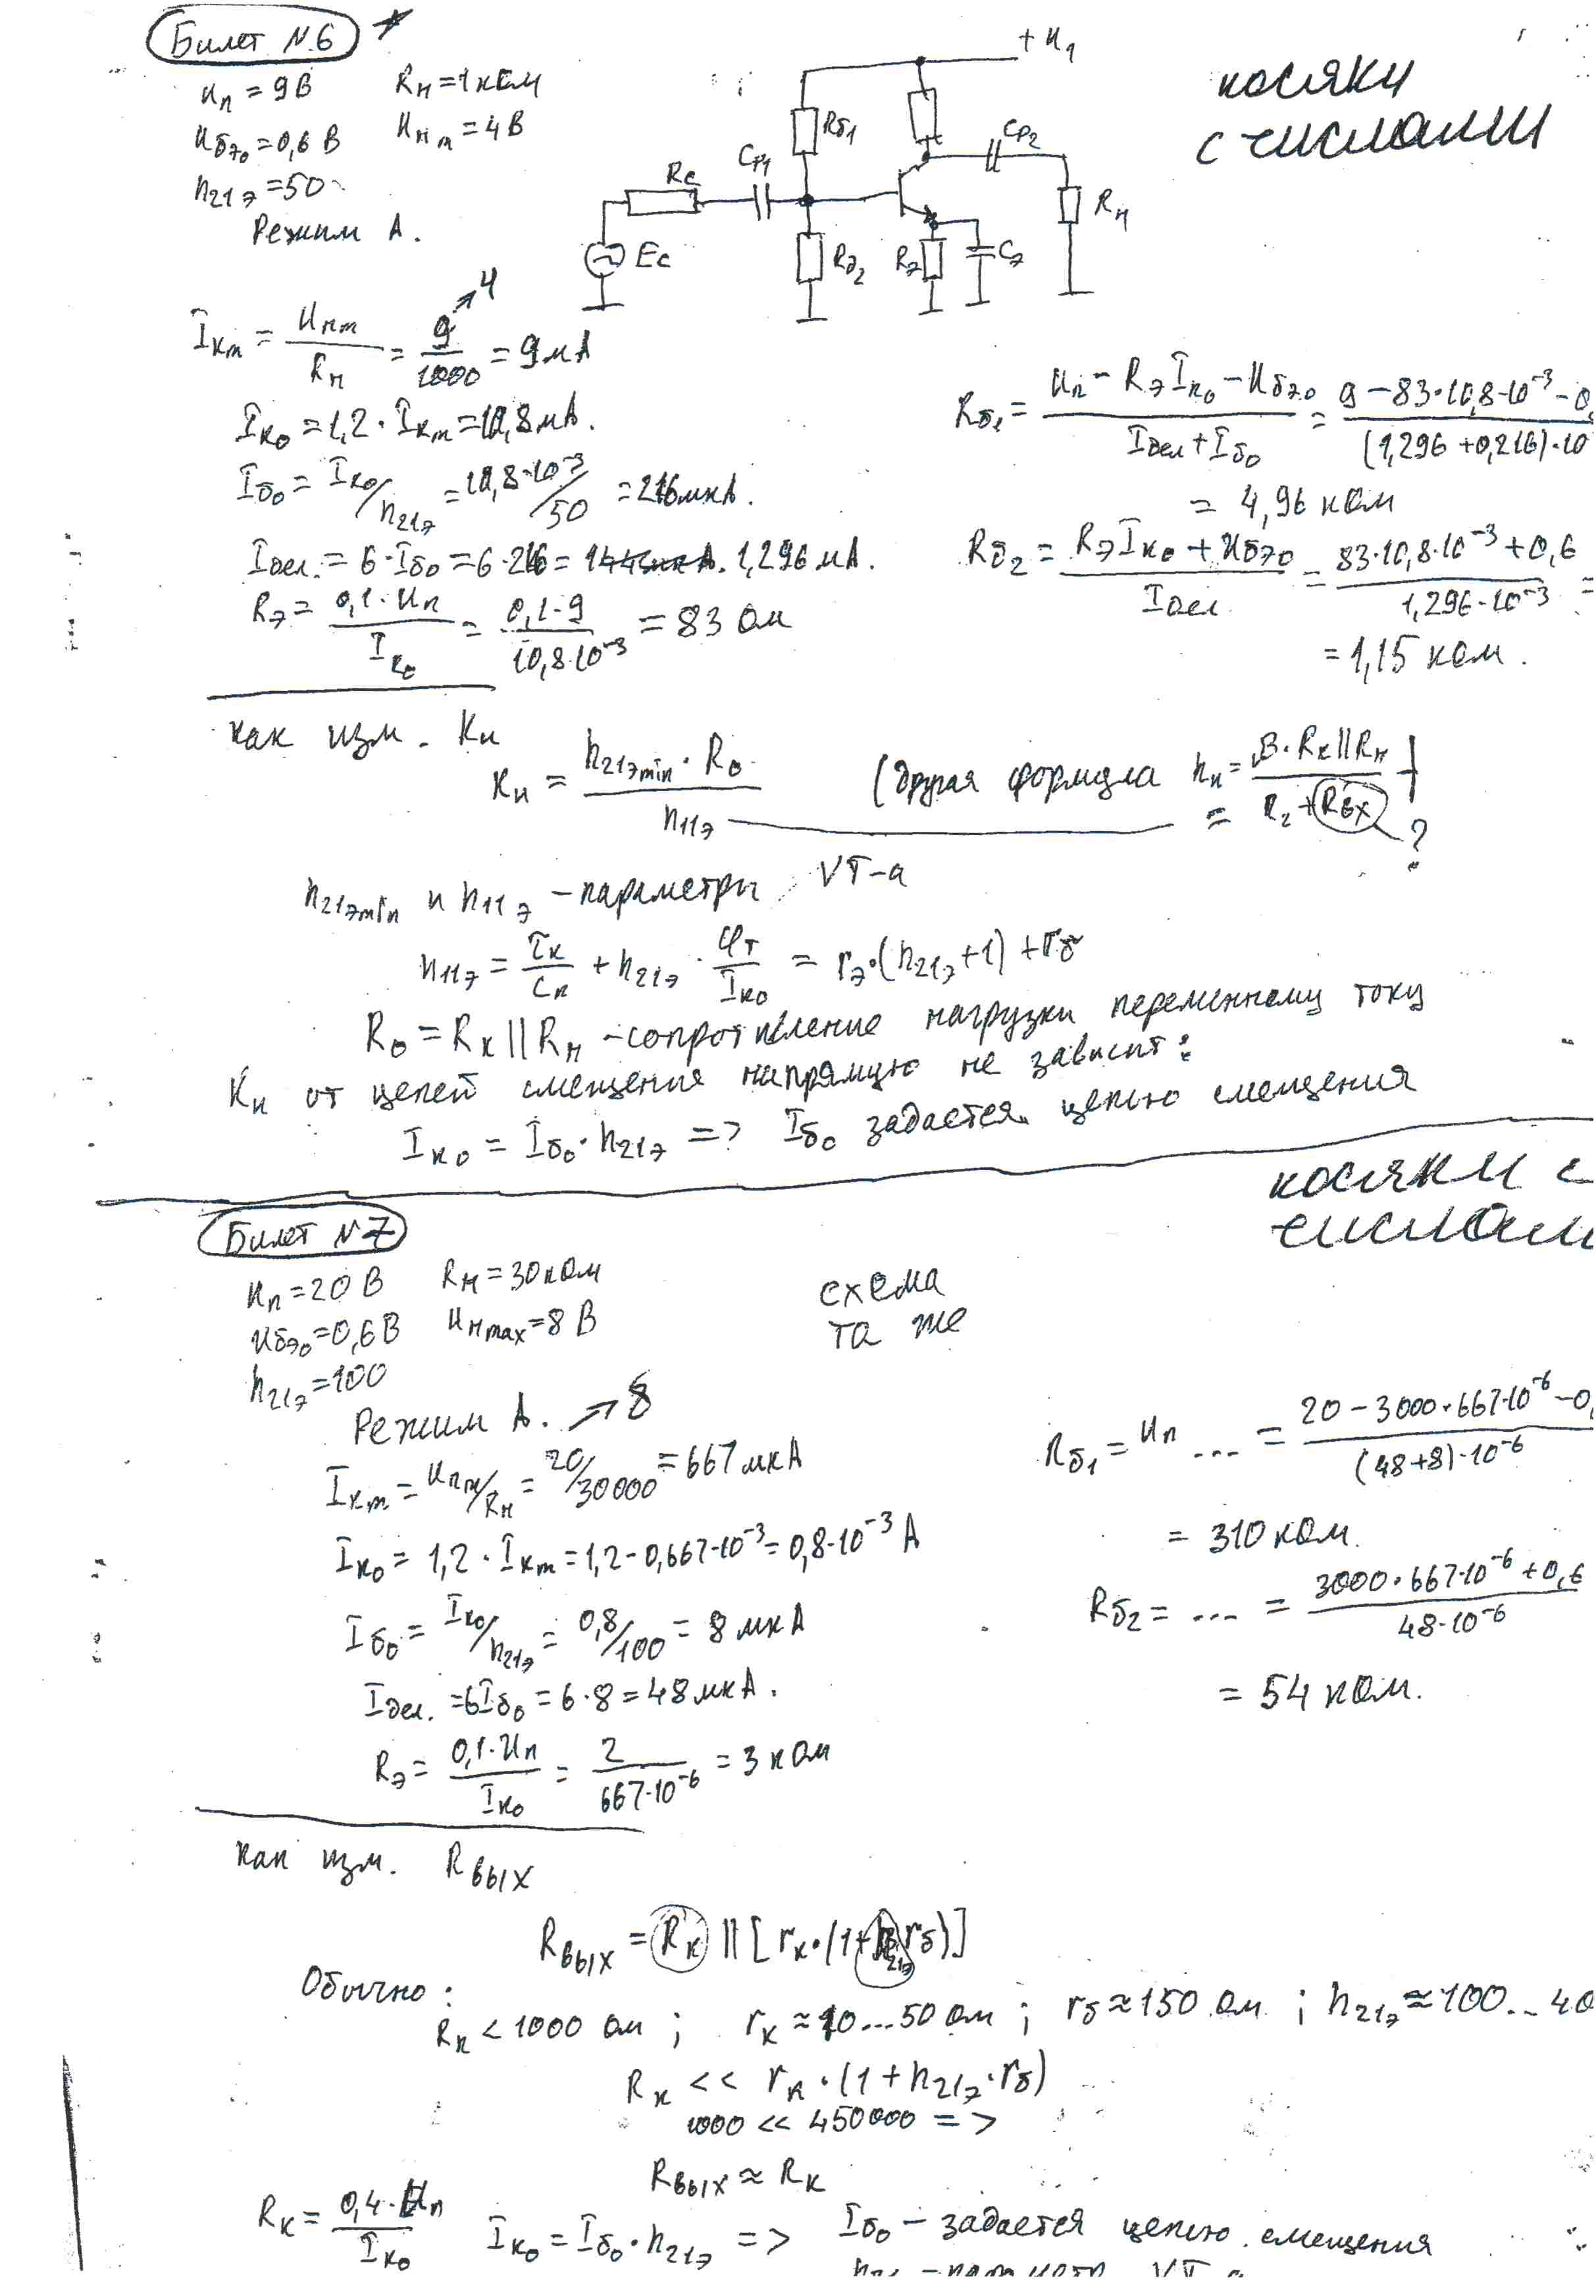 Билет №6 *
Uп = 9В Rн = 1 кОм
Uбэо = 0,6 В Uнm = 4 В
h21э = 50
Режим А.
+U1
косяки
с числами
Rc Cp1 Rб1 Cp2
Ec Rб2 Rэ Cэ Rн
Iкm = Uнm / Rн = 9 / 1000 = 9 мА → 4
Iко = 1,2 · Iкm = 10,8 мА.
Iбо = Iко / h21э = 10,8·10⁻³ / 50 = 216 мкА.
Iдел. = 6·Iбо = 6·216 = 1,296 мА.
Rэ = 0,1·Uп / Iко = 0,1·9 / 10,8·10⁻³ = 83 Ом
Rб1 = Uп − RэIко − Uбэо / Iдел + Iбо = 9 − 83·10,8·10⁻³ − 0, / (1,296 + 0,216)·10
= 4,96 кОм
Rб2 = RэIко + Uбэо / Iдел = 83·10,8·10⁻³ + 0,6 / 1,296·10⁻³ =
= 1,15 кОм.
как изм. Кu
Кu = h21эmin · R0 / h11э (другая формула hu = B·Rк||Rн / Rг + Rвх ?
h21эmin и h11э − параметры VT-а
h11э = τк / Cп + h21э · φт / Iко = rэ·(h21э+1) + rб
R0 = Rк || Rн − сопротивление нагрузки переменному току
Кu от цепей смещения напрямую не зависит:
Iко = Iбо · h21э => Iбо задается цепью смещения
косяки с
числами
Билет №7
Uп = 20 В Rн = 30 кОм
Uбэо = 0,6 В Uнmax = 8 В
h21э = 100
схема
та же
Режим А. → 8
Iкm = Uпm / Rн = 20 / 30000 = 667 мкА
Iко = 1,2 · Iкm = 1,2 · 0,667·10⁻³ = 0,8·10⁻³ А
Iбо = Iко / h21э = 0,8 / 100 = 8 мкА
Iдел. = 6Iбо = 6·8 = 48 мкА.
Rэ = 0,1·Uп / Iко = 2 / 667·10⁻⁶ = 3 кОм
Rб1 = Uп ... = 20 − 3000·667·10⁻⁶ − 0, / (48+8)·10⁻⁶
= 310 кОм.
Rб2 = ... = 3000·667·10⁻⁶ + 0,6 / 48·10⁻⁶
= 54 кОм.
как изм. Rвых
Rвых = Rк || [rк·(1+h21э rб)]
Обычно:
Rк < 1000 Ом ; rк ≈ 10...50 Ом ; rб ≈ 150 Ом ; h21э ≈ 100...40
Rк << rк·(1 + h21э·rб)
1000 << 450000 =>
Rвых ≈ Rк
Rк = 0,4·Uп / Iко Iко = Iбо·h21э => Iбо − задается цепью смещения